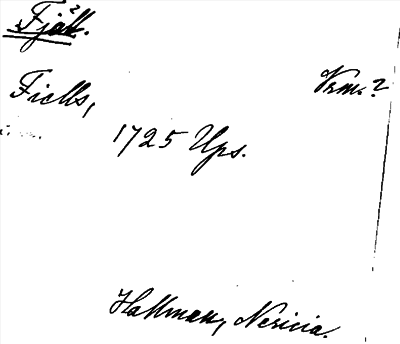 Fjäll.
?
Fiells,
Vrm.?
1725 Ups.
Hallman, Nericia.